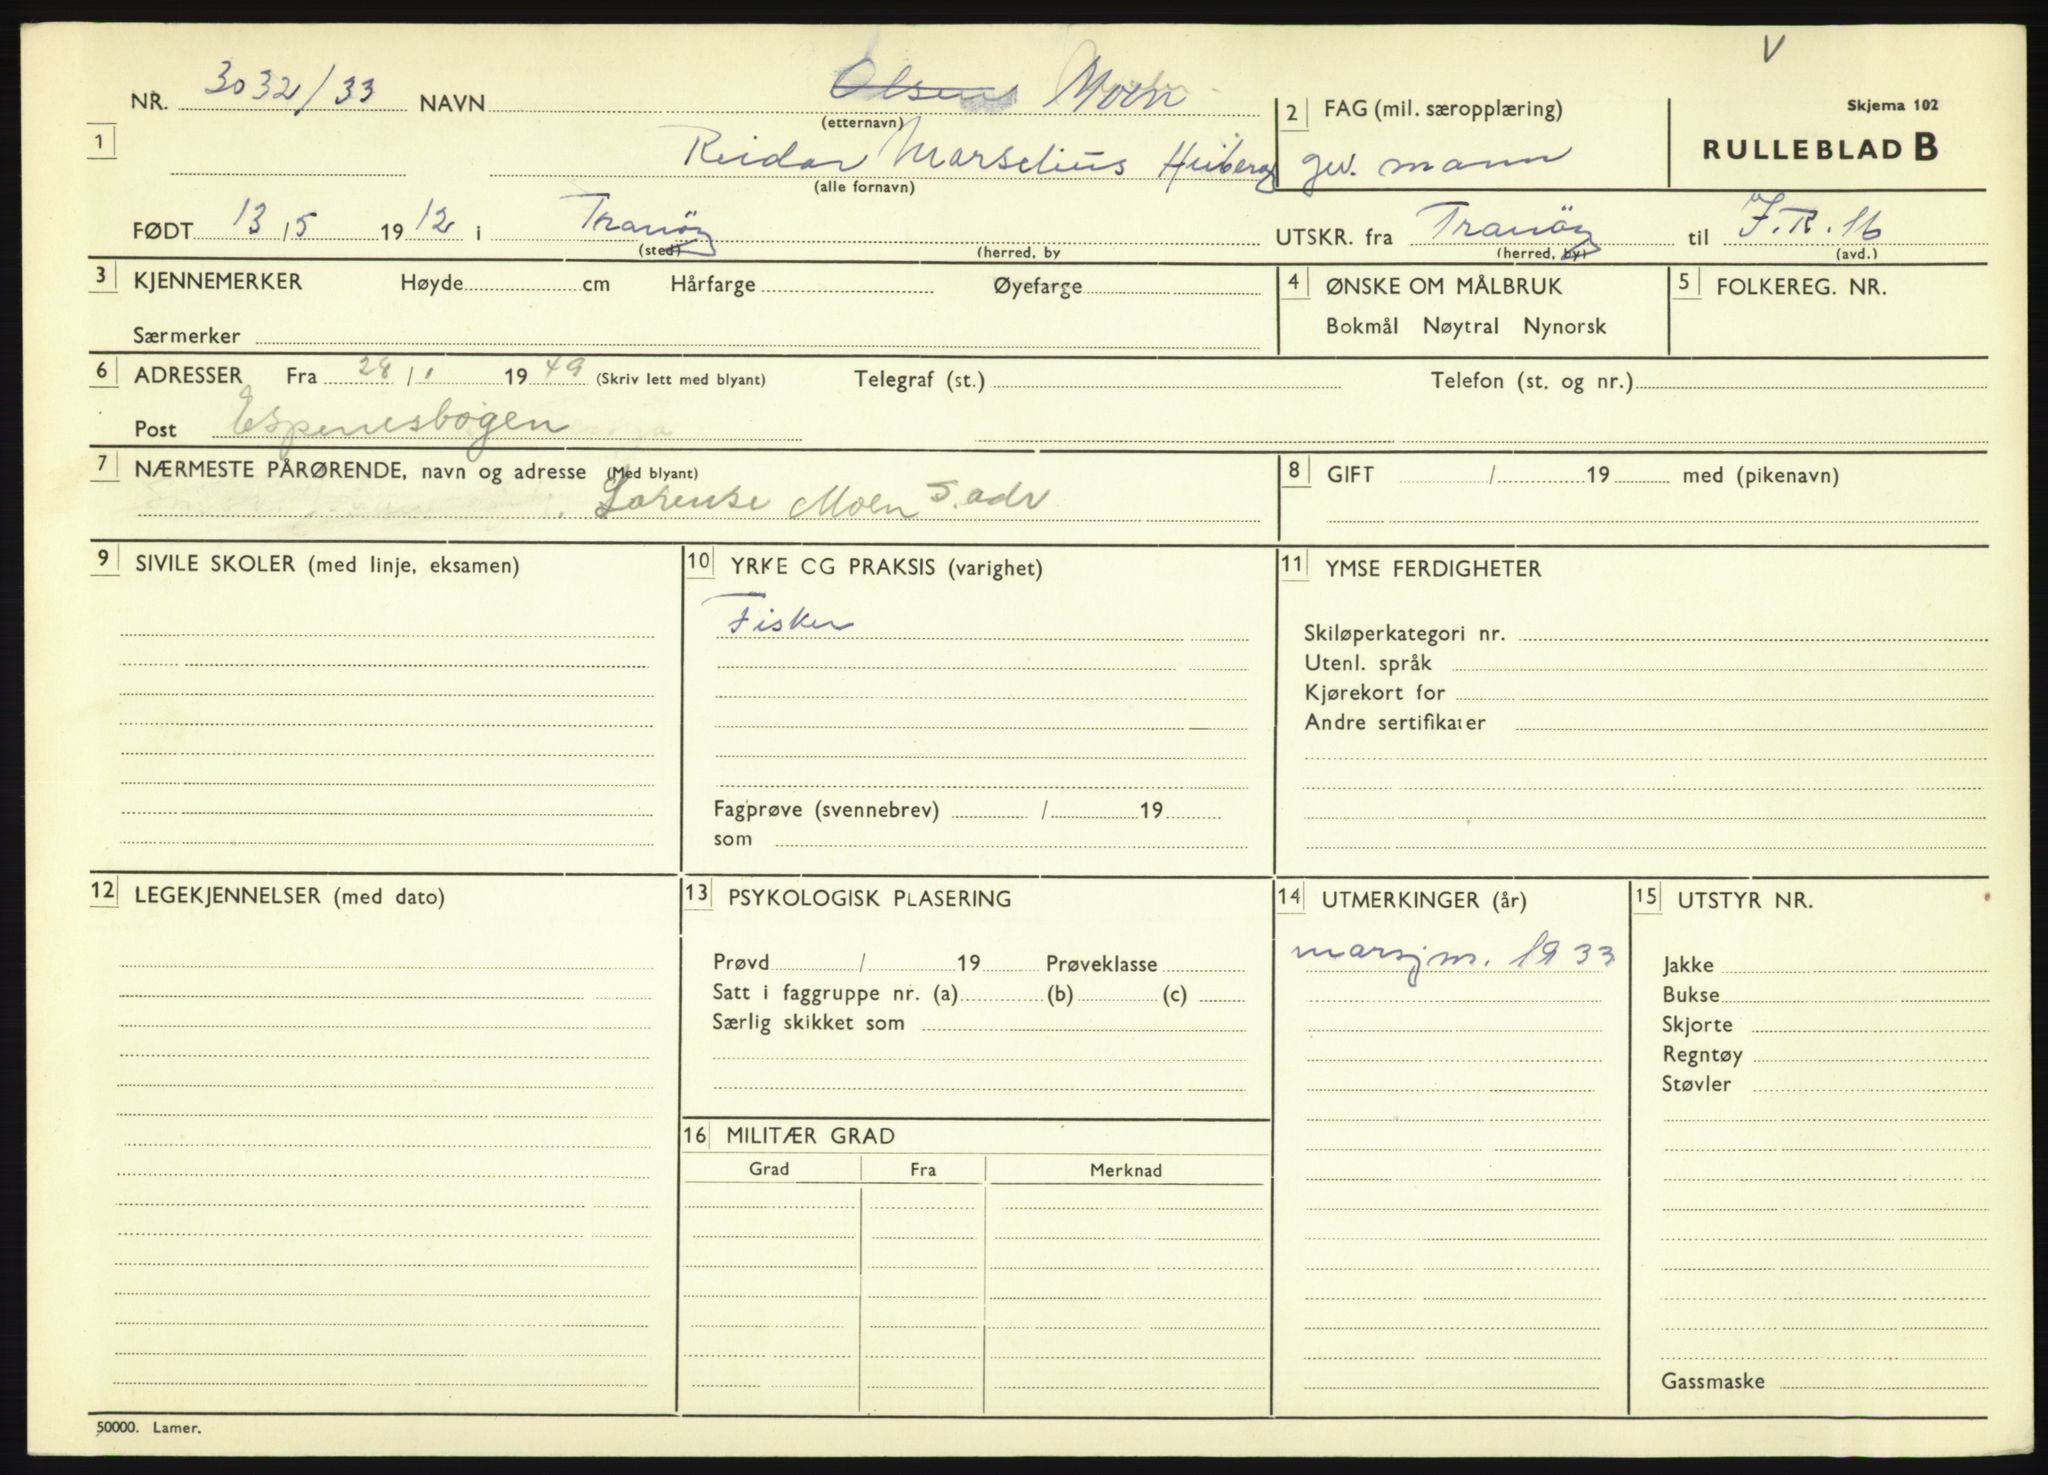 V
NR. 3032/33 NAVN Olsen Moen
(etternavn)
2 FAG (mil. særopplæring)
Skjema 102
RULLEBLAD B
1
Reidar Marselius Heiberg
(alle fornavn)
gev. mann
FØDT 13/5 1912 i Tranöy
(sted) (herred, by
UTSKR. fra Tranöy til I.R. 16
(herred, by) (avd.)
3 KJENNEMERKER Høyde cm Hårfarge Øyefarge
Særmerker
4 ØNSKE OM MÅLBRUK
Bokmål Nøytral Nynorsk
5 FOLKEREG. NR.
6 ADRESSER Fra 28/1 1949 (Skriv lett med blyant) Telegraf (st.) Telefon (st. og nr.)
Post Espenesbogen
7 NÆRMESTE PÅRØRENDE, navn og adresse (Med blyant)
Lorense Moen s. adr
8 GIFT / 19 med (pikenavn)
9 SIVILE SKOLER (med linje, eksamen)
10 YRKE CG PRAKSIS (varighet)
Fisker
Fagprøve (svennebrev) / 19
som
11 YMSE FERDIGHETER
Skiløperkategori nr.
Utenl. språk
Kjørekort for
Andre sertifikater
12 LEGEKJENNELSER (med dato)
13 PSYKOLOGISK PLASERING
Prøvd / 19 Prøveklasse
Satt i faggruppe nr. (a) (b) (c)
Særlig skikket som
14 UTMERKINGER (år)
marsjm. 1933
15 UTSTYR NR.
Jakke
Bukse
Skjorte
Regntøy
Støvler
Gassmaske
16 MILITÆR GRAD
Grad Fra Merknad
50000. Lamer.